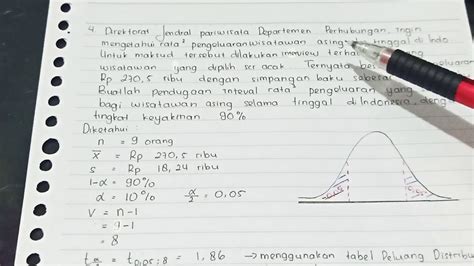 4. Direktorat Jendral pariwisata Departemen Perhubungan, ingin
mengetahui rata² pengeluaran wisatawan asing tinggal di Indo
Untuk maksud tersebut dilakukan interview terha
wisatawan yang dipilih scr acak. Ternyata bes
Rp 270,5 ribu dengan simpangan baku sebesar
Buatlah pendugaan interval rata² pengeluaran yang
bagi wisatawan asing selama tinggal di Indonesia, deng
tingkat keyakinan 90%
Diketahui :
n = 9 orang
x̄ = Rp 270,5 ribu
s = Rp 18,24 ribu
1-α = 90%
α = 10% α/2 = 0.05
V = n-1
= 9-1
= 8
t α/2 = t 0,05 ; 8 = 1,86 → menggunakan tabel Peluang Distrib